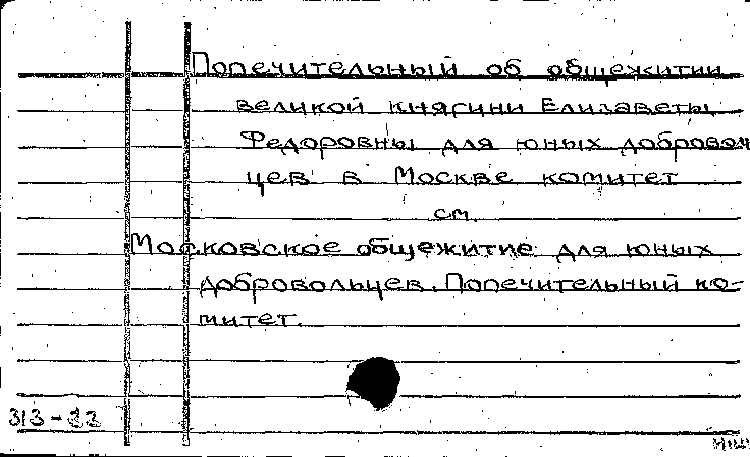 Попечительный об общежитии
великой княгини Елизаветы
Федоровны для юных доброволь
цев в Москве комитет
см.
Московское общежитие для юных
добровольцев. Попечительный ко-
митет.
313-22